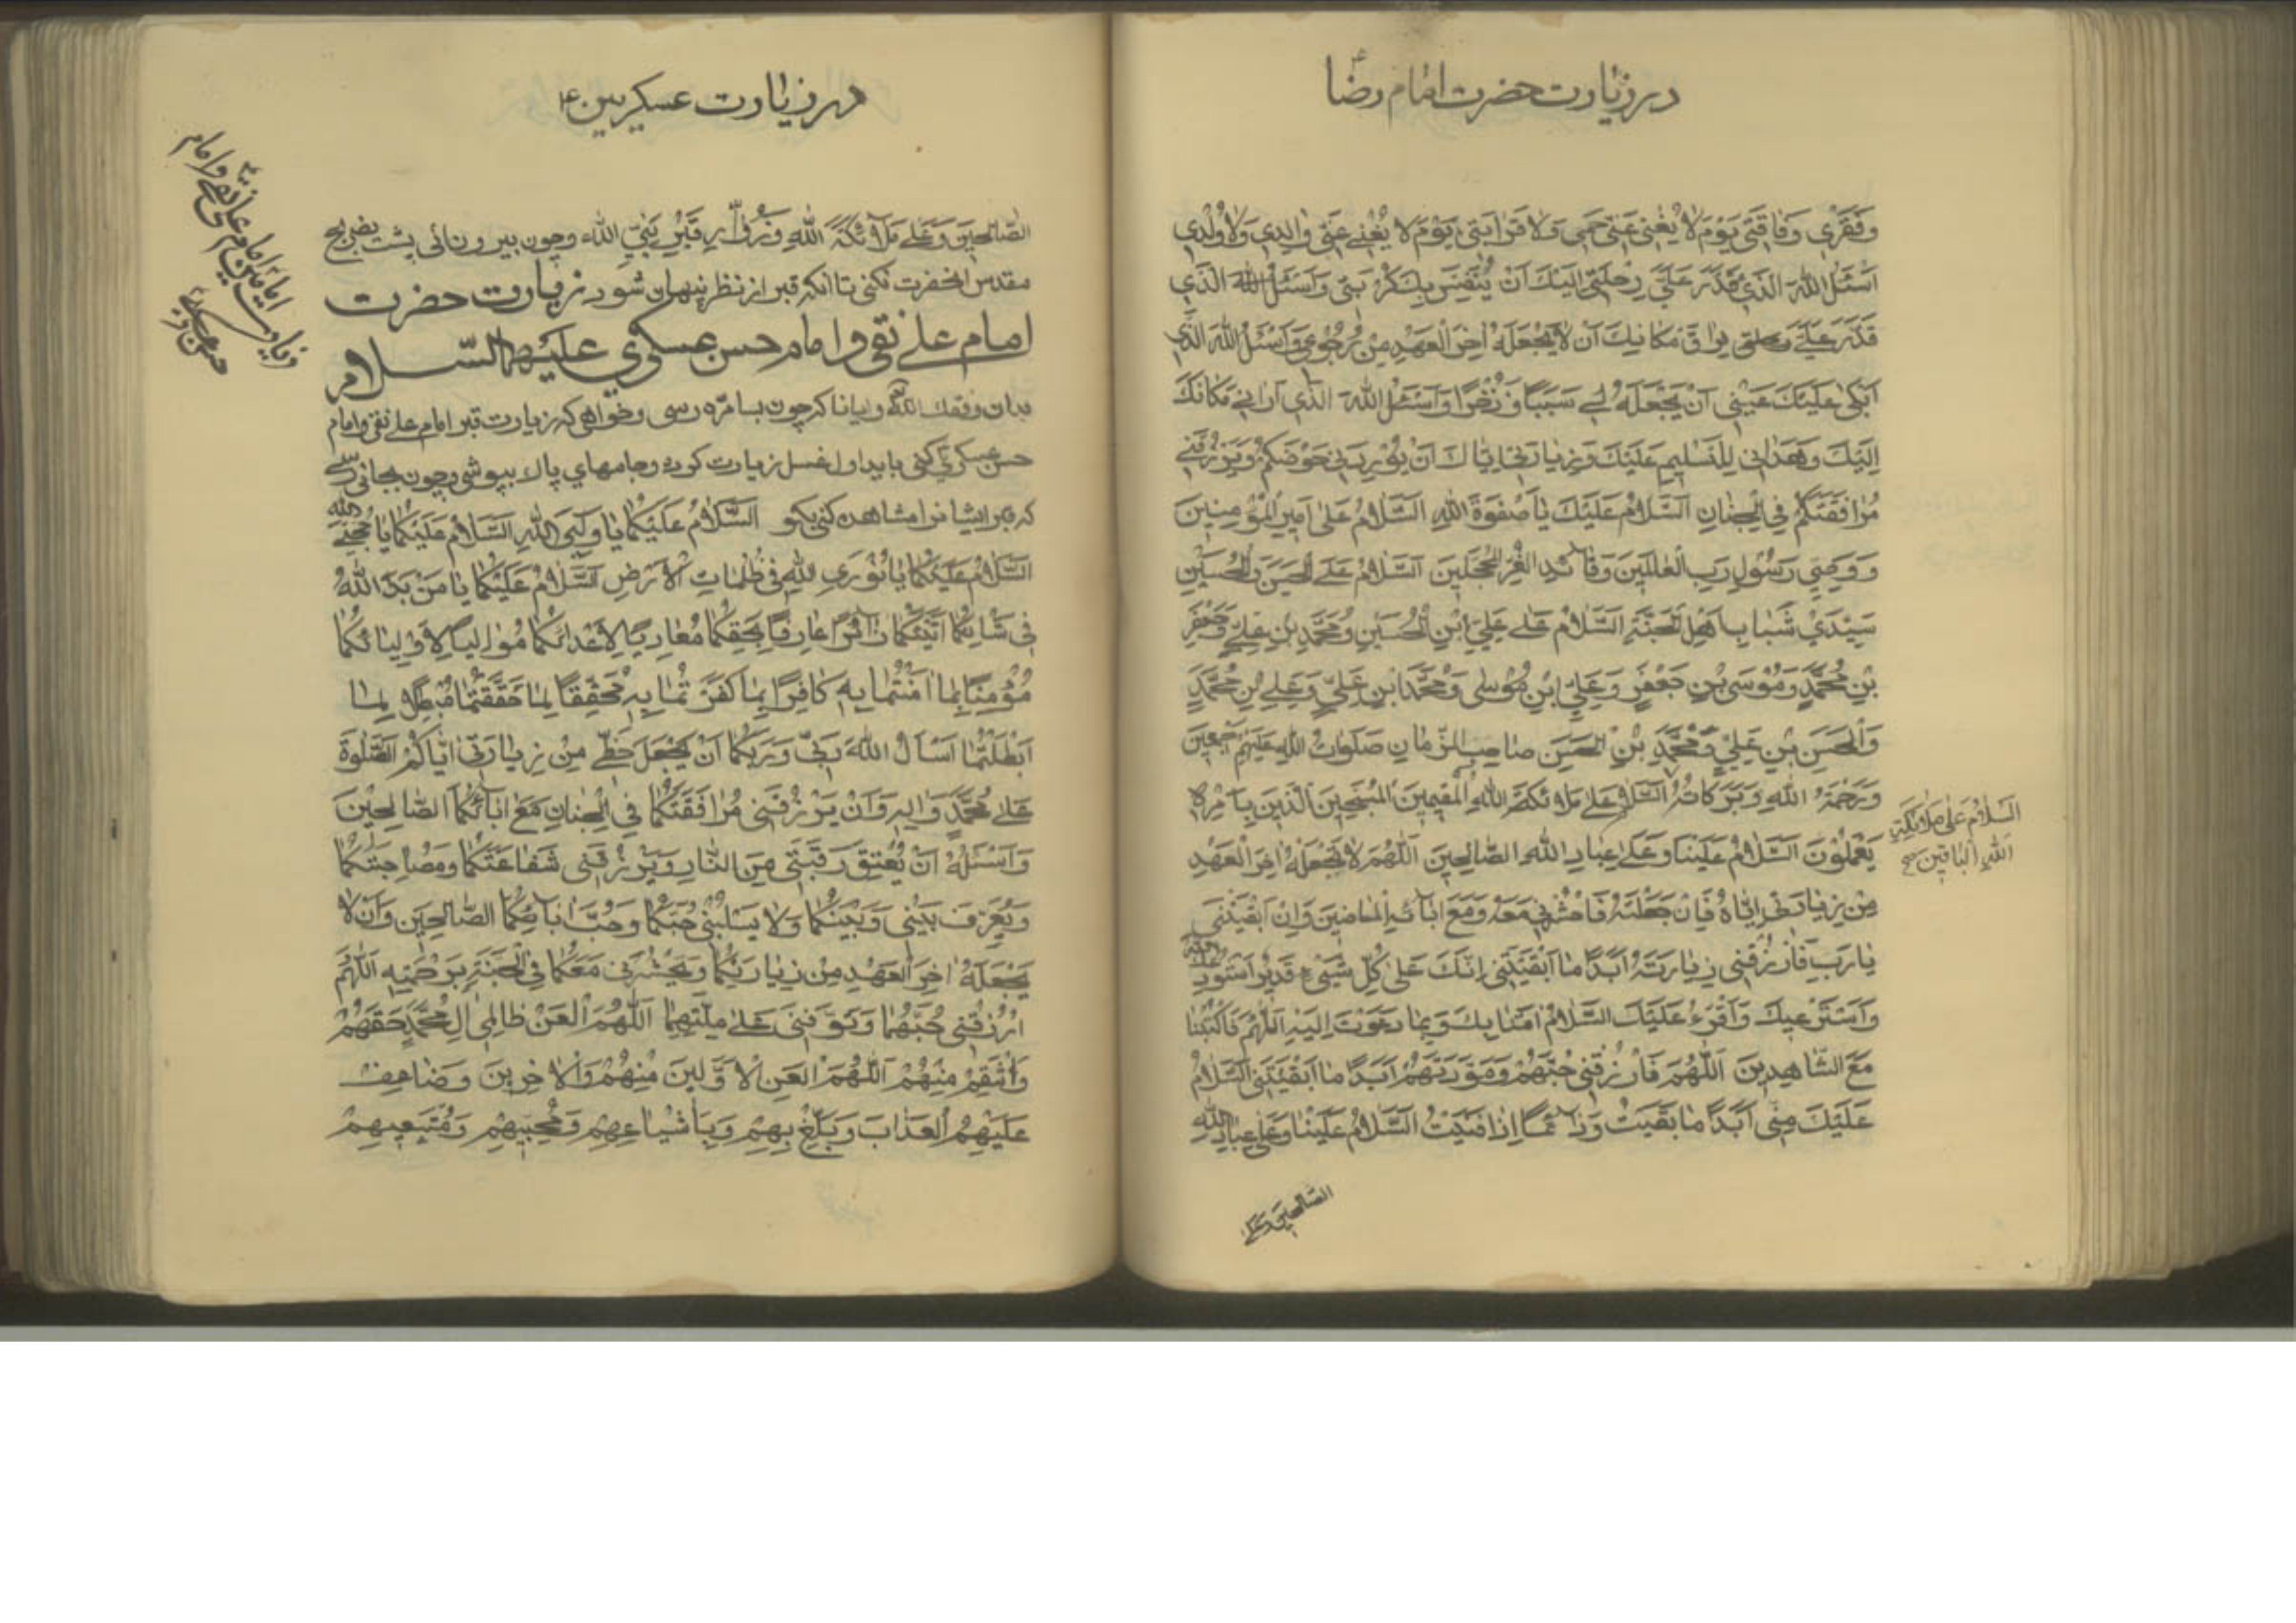 در زیارت حضرت امام رضا ع
وَفَقْرِي وَفَاقَتِي يَوْمَ لَا يُغْنِي عَنِّي حَمِي وَلَا قَرَابَتِي يَوْمَ لَا يُغْنِي عَنِّي وَالِدِي وَلَا وُلْدِي
اَسْئَلُ اللهَ الَّذِي قَدَّرَ عَلَيَّ رِحْلَتِي اِلَيْكَ اَنْ يُنَفِّسَ بِكَ كَرْبَتِي وَاَسْئَلُ اللهَ الَّذِي
قَدَّرَ عَلَيَّ فِرَاقَ مَكَانِكَ اَنْ لَا يَجْعَلَهُ اٰخِرَ الْعَهْدِ مِنْ رُجُوعِي وَاَسْئَلُ اللهَ الَّذِي
اَبْكٰى عَلَيْكَ عَيْنِي اَنْ يَجْعَلَهُ لِي سَبَبًا وَذُخْرًا وَاَسْئَلُ اللهَ الَّذِي اَرَانِي مَكَانَكَ
اِلَيْكَ وَهَدَانِي لِلتَّسْلِيمِ عَلَيْكَ وَزِيَارَتِي اِيَّاكَ اَنْ يُورِدَنِي حَوْضَكُمْ وَيَرْزُقَنِي
مُرَافَقَتَكُمْ فِي الْجِنَانِ اَلسَّلَامُ عَلَيْكَ يَا صَفْوَةَ اللهِ اَلسَّلَامُ عَلٰى اَمِيرِ الْمُؤْمِنِينَ
وَوَصِيِّ رَسُولِ رَبِّ الْعَالَمِينَ وَقَائِدِ الْغُرِّ الْمُحَجَّلِينَ اَلسَّلَامُ عَلَى الْحَسَنِ وَالْحُسَيْنِ
سَيِّدَيْ شَبَابِ اَهْلِ الْجَنَّةِ اَلسَّلَامُ عَلٰى عَلِيِّ ابْنِ الْحُسَيْنِ وَمُحَمَّدِ بْنِ عَلِيٍّ وَجَعْفَرِ
بْنِ مُحَمَّدٍ وَمُوسَى بْنِ جَعْفَرٍ وَعَلِيِّ ابْنِ مُوسٰى وَمُحَمَّدِ ابْنِ عَلِيٍّ وَعَلِيِّ بْنِ مُحَمَّدٍ
وَالْحَسَنِ بْنِ عَلِيٍّ وَمُحَمَّدِ بْنِ الْحَسَنِ صَاحِبِ الزَّمَانِ صَلَوَاتُ اللهِ عَلَيْهِمْ اَجْمَعِينَ
وَرَحْمَةُ اللهِ وَبَرَكَاتُهُ اَلسَّلَامُ عَلٰى مَلَائِكَةِ اللهِ الْمُقِيمِينَ الْمُسَبِّحِينَ الَّذِينَ بِاَمْرِهٖ
اَلسَّلَامُ عَلٰى مَلَائِكَةِ
اللهِ الْبَاقِينَ
يَعْمَلُونَ اَلسَّلَامُ عَلَيْنَا وَعَلٰى عِبَادِ اللهِ الصَّالِحِينَ اَللّٰهُمَّ لَا تَجْعَلْهُ اٰخِرَ الْعَهْدِ
مِنْ زِيَارَتِي اِيَّاهُ فَاِنْ جَعَلْتَهُ فَاحْشُرْنِي مَعَهُ وَمَعَ اٰبَائِهِ الْمَاضِينَ وَاِنْ اَبْقَيْتَنِي
يَا رَبِّ فَارْزُقْنِي زِيَارَتَهُ اَبَدًا مَا اَبْقَيْتَنِي اِنَّكَ عَلٰى كُلِّ شَيْءٍ قَدِيرٌ اَسْتَوْدِعُكَ اللهَ
وَاَسْتَرْعِيكَ وَاَقْرَءُ عَلَيْكَ السَّلَامُ اٰمَنَّا بِكَ وَبِمَا دَعَوْتَ اِلَيْهِ اَللّٰهُمَّ فَاكْتُبْنَا
مَعَ الشَّاهِدِينَ اَللّٰهُمَّ فَارْزُقْنِي حُبَّهُمْ وَمَوَدَّتَهُمْ اَبَدًا مَا اَبْقَيْتَنِي اَلسَّلَامُ
عَلَيْكَ مِنِّي اَبَدًا مَا بَقِيتُ وَدَائِمًا اِذَا فَنِيتُ اَلسَّلَامُ عَلَيْنَا وَعَلٰى عِبَادِ اللهِ
الصّالحین وعلی
در زیارت عسکریین ع
الصَّالِحِينَ وَعَلٰى مَلَائِكَةِ اللهِ وَزُوَّارِ قَبْرِ نَبِيِّ اللهِ وچون بیرون ائی پشت بضریح
مقدس انحضرت نکنی تا انکه قبر از نظر پنهان شود زیارت حضرت
امام علی نقی و امام حسن عسکری علیهما السّلام
زیارت امامین امام علی نقی و امام
حسن عسکری
بدان وفقك الله وایانا که چون بسامره رسی وخواهی که زیارت قبر امام علی نقی وامام
حسن عسکری کنی باید اول غسل زیارت کرده وجامهای پاك بپوشی وچون بجائی رسی
که قبر ایشانرا مشاهده کنی بگو اَلسَّلَامُ عَلَيْكُمَا يَا وَلِيَّيِ اللهِ اَلسَّلَامُ عَلَيْكُمَا يَا حُجَّتَيِ الله
اَلسَّلَامُ عَلَيْكُمَا يَا نُورَيِ اللهِ فِي ظُلُمَاتِ الْاَرْضِ اَلسَّلَامُ عَلَيْكُمَا يَا مَنْ بَدَا للهِ
فِي شَانِكُمَا اَتَيْتُكُمَا زَائِرًا عَارِفًا بِحَقِّكُمَا مُعَادِيًا لِاَعْدَائِكُمَا مُوَالِيًا لِاَوْلِيَائِكُمَا
مُؤْمِنًا بِمَا اٰمَنْتُمَا بِهِ كَافِرًا بِمَا كَفَرْتُمَا بِهِ مُحَقِّقًا لِمَا حَقَّقْتُمَا مُبْطِلًا لِمَا
اَبْطَلْتُمَا اَسْاَلُ اللهَ رَبِّي وَرَبَّكُمَا اَنْ يَجْعَلَ حَظِّي مِنْ زِيَارَتِي اِيَّاكُمُ الصَّلٰوةَ
عَلٰى مُحَمَّدٍ وَاٰلِهِ وَاَنْ يَرْزُقَنِي مُرَافَقَتَكُمَا فِي الْجِنَانِ مَعَ اٰبَائِكُمَا الصَّالِحِينَ
وَاَسْئَلُهُ اَنْ يُعْتِقَ رَقَبَتِي مِنَ النَّارِ وَيَرْزُقَنِي شَفَاعَتَكُمَا وَمُصَاحَبَتَكُمَا
وَيُعَرِّفَ بَيْنِي وَبَيْنَكُمَا وَلَا يَسْلُبَنِي حُبَّكُمَا وَحُبَّ اٰبَائِكُمَا الصَّالِحِينَ وَاَنْ لَا
يَجْعَلَهُ اٰخِرَ الْعَهْدِ مِنْ زِيَارَتِكُمَا وَيَحْشُرَنِي مَعَكُمَا فِي الْجَنَّةِ بِرَحْمَتِهِ اَللّٰهُمَّ
ارْزُقْنِي حُبَّهُمَا وَتَوَفَّنِي عَلٰى مِلَّتِهِمَا اَللّٰهُمَّ الْعَنْ ظَالِمِي اٰلِ مُحَمَّدٍ حَقَّهُمْ
وَانْتَقِمْ مِنْهُمْ اَللّٰهُمَّ الْعَنِ الْاَوَّلِينَ مِنْهُمْ وَالْاٰخِرِينَ وَضَاعِفْ
عَلَيْهِمُ الْعَذَابَ وَبَلِّغْ بِهِمْ وَبِاَشْيَاعِهِمْ وَمُحِبِّيهِمْ وَمُتَّبِعِيهِمْ